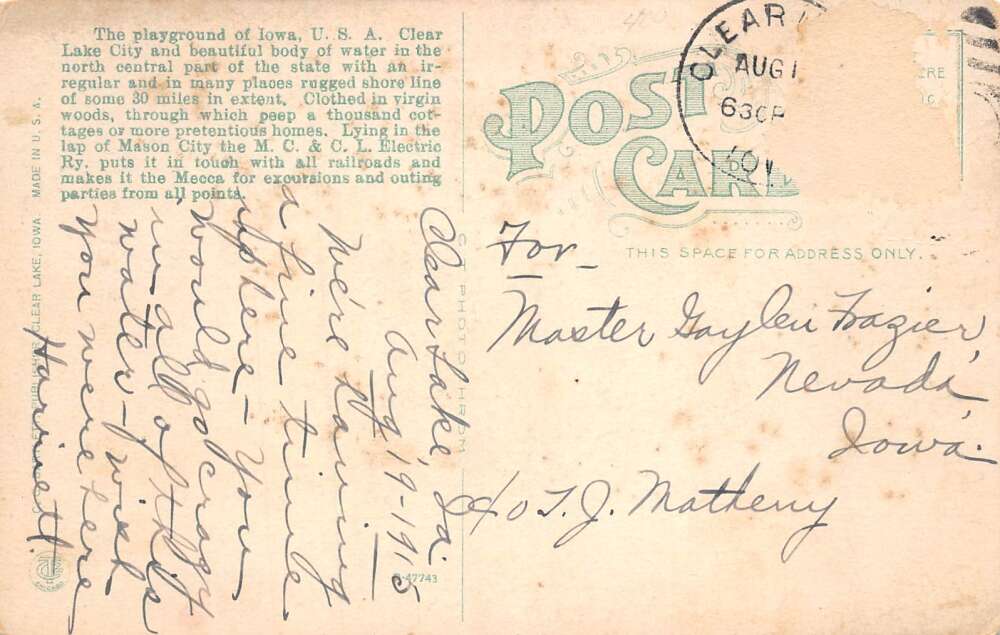 The playground of Iowa, U. S. A. Clear
Lake City and beautiful body of water in the
north central part of the state with an ir-
regular and in many places rugged shore line
of some 30 miles in extent. Clothed in virgin
woods, through which peep a thousand cot-
tages or more pretentious homes. Lying in the
lap of Mason City the M. C. & C. L. Electric
Ry. puts it in touch with all railroads and
makes it the Mecca for excursions and outing
parties from all points.
MADE IN U. S. A.
PUBLISHER, CLEAR LAKE, IOWA.
POST
CARD
CLEAR
AUG 1
630P
IOW
THIS SPACE FOR ADDRESS ONLY.
Clear Lake, Ia.
Aug 19-1915
We're having
a fine time
up here - You
would go crazy
in all of this
water - wish
you were here
Harriett.
For
Master Gaylen Frazier,
Nevada,
Iowa.
c/o T. J. Matheny
C. T. PHOTOCHROM
47743